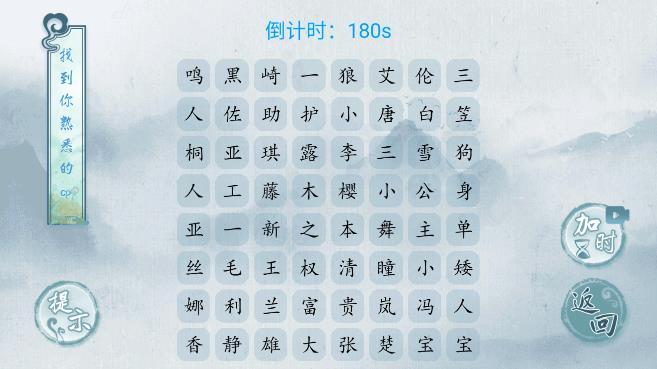 倒计时：180s
找到你熟悉的cp
鸣黑崎一狼艾伦三
人佐助护小唐白笠
桐亚琪露李三雪狗
人工藤木樱小公身
亚一新之本舞主单
丝毛王权清瞳小矮
娜利兰富贵岚冯人
香静雄大张楚宝宝
加时
提示
返回